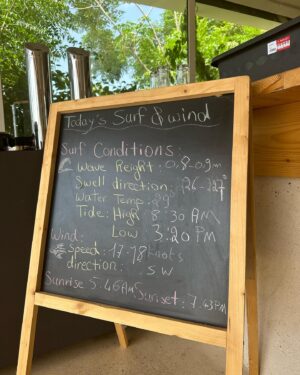 Today's Surf & wind
Surf Conditions:
Wave Height: 0,8-0,9m
Swell direction: 226-227°
Water Temp: 29°
Tide: High 8:30 AM
Low 3:20 PM
Wind:
Speed: 17-18 knots
direction: SW
Sunrise 5:46AM Sunset: 7:43PM